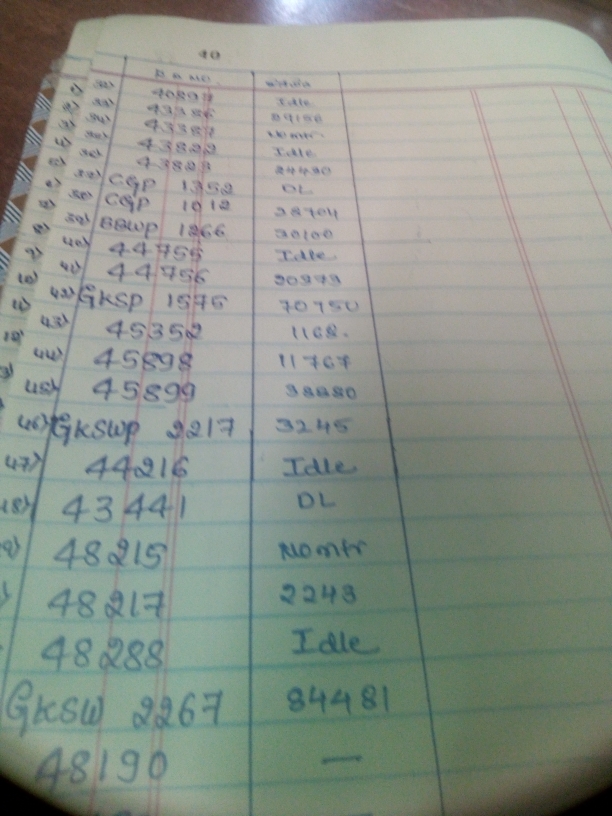 40
R R NO.
32) 40897 Idle
33) 43386
34) 43387 Nomtr
35) 43822 Idle
36) 43823 24490
37) CGP 1352 DL
38) CGP 1012 38704
39) BBWP 1266 30100
40) 44755 Idle
41) 44756 20979
42) GKSP 1575 70750
43) 45352 1168.
44) 45898 11767
45) 45899 38880
46) GKSWP 2217 3245
47) 44216 Idle
48) 43441 DL
48215 Nomtr
48217 2243
48288 Idle
GKSW 2267 84481
48190 —